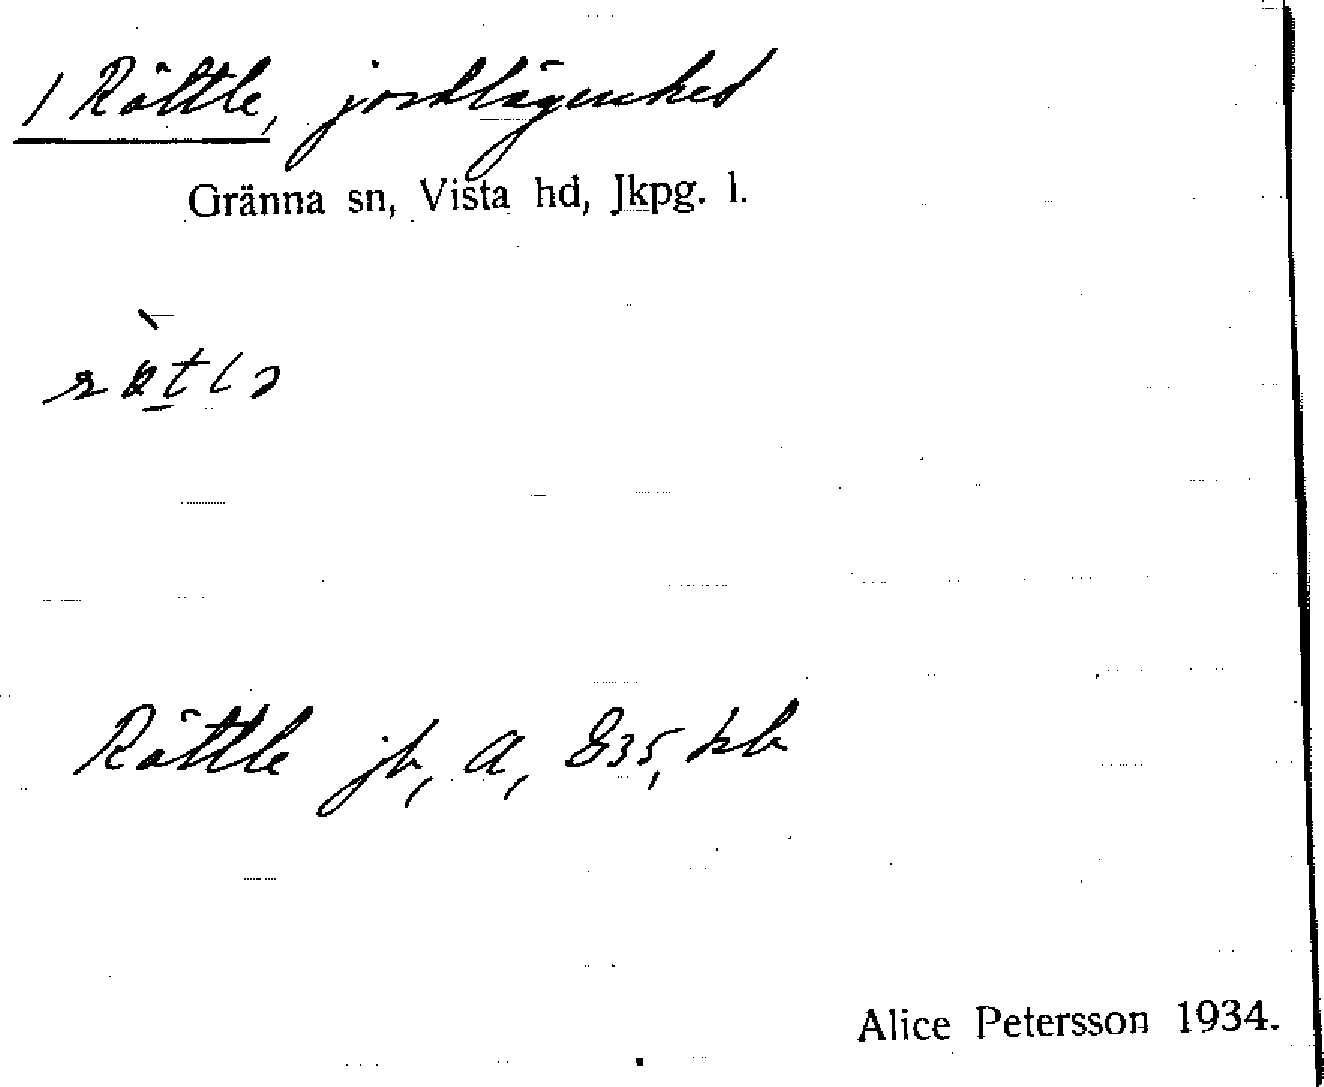 1 Röttle, jordlägenhet
Gränna sn, Vista hd, Jkpg. l.
Röttle jb, A, E35, kb
Alice Petersson 1934.